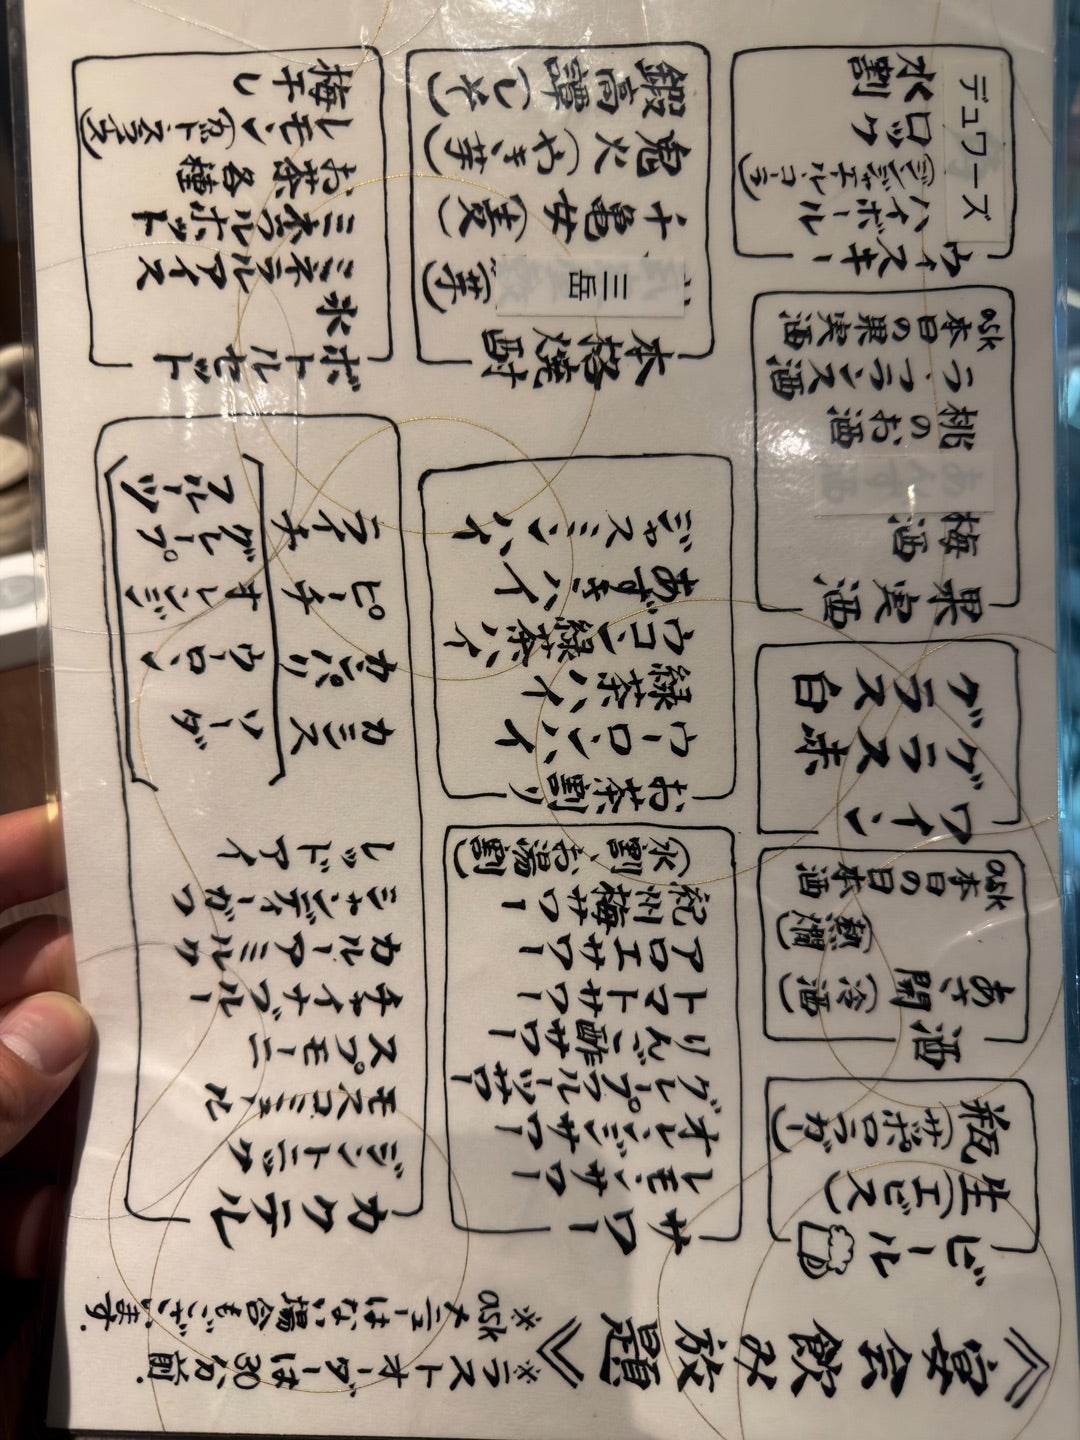 《宴会飲み放題》
※ラストオーダーは30分前.
※askメニューはない場合もございます.
ビール
生(エビス)
瓶(サッポロラガー)
酒
あさ開
(冷酒)
(熱燗)
本日の日本酒
ask
ワイン
グラス赤
グラス白
果実酒
梅酒
桃のお酒
ラ・フランス酒
本日の果実酒
ask
ウィスキー
デュワーズ
ハイボール
(ジンジャエール・コーラ)
ロック
水割
サワー
レモンサワー
オレンジサワー
グレープフルーツサワー
りんご酢サワー
トマトサワー
アロエサワー
紀州梅サワー
(水割、お湯割)
お茶割り
ウーロンハイ
緑茶ハイ
ウコン緑茶ハイ
あずきハイ
ジャスミンハイ
本格焼酎
三岳 (芋)
千亀女 (麦)
鬼火 (やき芋)
鍛高譚 (しそ)
カクテル
ジントニック
モスコミュール
スプモーニ
チャイナブルー
カルーアミルク
シャンディーガフ
レッドアイ
カシス
カンパリ
ピーチ
ライチ
ソーダ
ウーロン
オレンジ
グレープフルーツ
ボトルセット
氷
ミネラルアイス
ミネラルホット
お茶各種
レモン(カットスライス)
梅干し